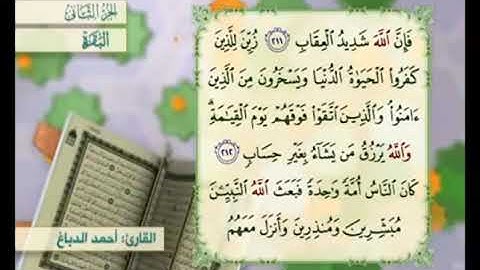 الجزء الثاني
البقرة
فَإِنَّ ٱللَّهَ شَدِيدُ ٱلْعِقَابِ ٢١١ زُيِّنَ لِلَّذِينَ
كَفَرُوا۟ ٱلْحَيَوٰةُ ٱلدُّنْيَا وَيَسْخَرُونَ مِنَ ٱلَّذِينَ
ءَامَنُوا۟ وَٱلَّذِينَ ٱتَّقَوْا۟ فَوْقَهُمْ يَوْمَ ٱلْقِيَـٰمَةِ ۗ
وَٱللَّهُ يَرْزُقُ مَن يَشَآءُ بِغَيْرِ حِسَابٍ ٢١٢
كَانَ ٱلنَّاسُ أُمَّةً وَٰحِدَةً فَبَعَثَ ٱللَّهُ ٱلنَّبِيِّـۧنَ
مُبَشِّرِينَ وَمُنذِرِينَ وَأَنزَلَ مَعَهُمُ
القارئ: أحمد الدباغ